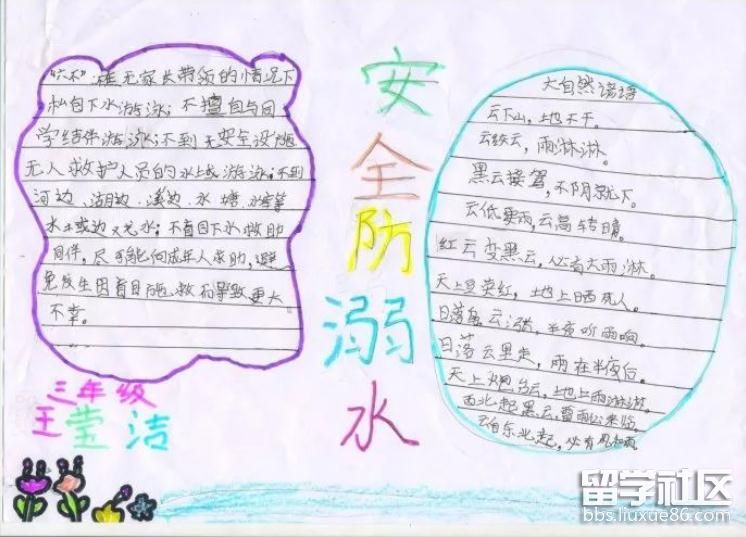 "六不":在无家长带领的情况下
私自下水游泳;不擅自与同
学结伴游泳;不到无安全设施
无人救护人员的水域游泳;不到
河边、湖边、溪边、水塘、水库等
水;不盲目下水救助
同伴,尽可能向成年人求助,避
免发生因盲目施救而导致更大
不幸。
三年级
王莹洁
安
全
防
溺
水
大自然谚语
云下山,地不干。
云绞云,雨淋淋。
黑云接驾,不阴就下。
云低要雨,云高转晴。
红云变黑云,必有大雨淋。
天上豆荚红,地上晒死人。
日落乌云涨,半夜听雨响。
日落云里走,雨在半夜后。
天上炮台云,地上雨淋淋。
西北起黑云,雷雨必来临。
云自东北起,必有风和雨
留学社区
bbs.liuxue86.com